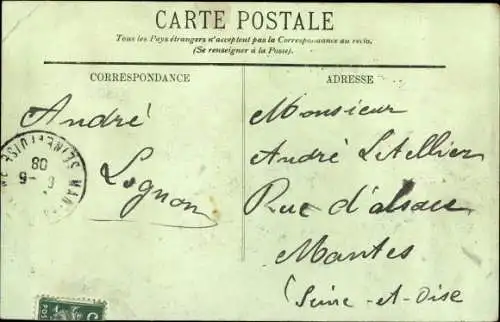 CARTE POSTALE
Tous les Pays étrangers n'acceptent pas la Correspondance au recto.
(Se renseigner à la Poste).
CORRESPONDANCE
ADRESSE
André
Lognon
Monsieur
André Letellier
Rue d'alsace
Mantes
(Seine-et-Oise
SEINE ET OISE
MAN
6-9
08